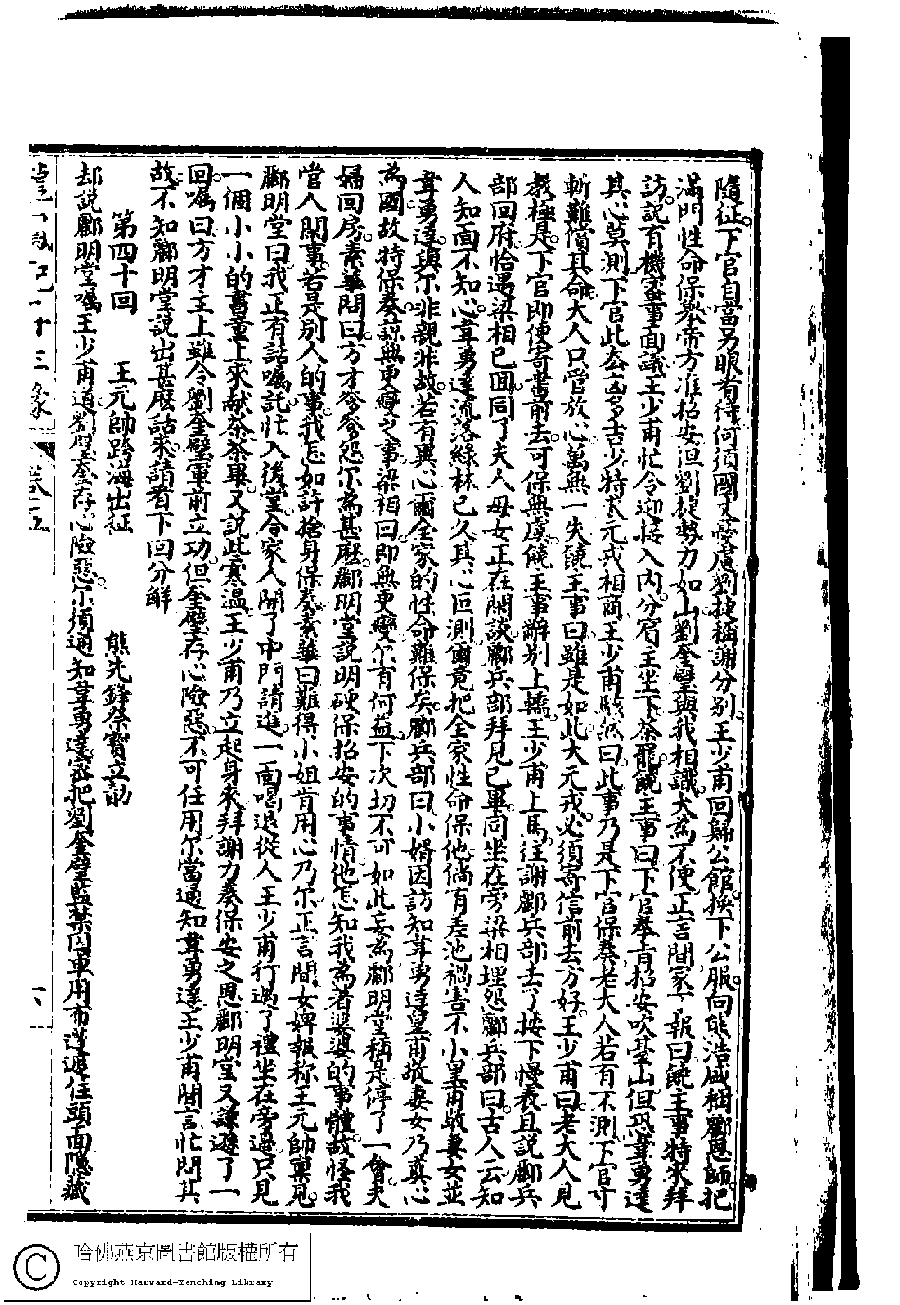 隨征下官自當另眼看待何須國丈憂慮劉捷稱謝分別王少甫回歸公館換下公服向熊浩感稱酈恩師把
滿門性命保奉帝方准招安但劉捷勢力如山劉奎璧與我相識大為不便正言間家丁報曰饒王事特來拜
訪說有機密事面議王少甫忙令迎接入內分賓主坐下茶罷饒王事曰下官奉旨招安吹臺山但恐韋勇達
其心莫測下官此去凶多吉少特來元戎相商王少甫駭然曰此事乃是下官保奏老大人若有不測下官寸
斬難償其命大人只管放心萬無一失饒王事曰雖是如此大元戎必須寄信前去方好王少甫曰老大人見
教極是下官即便寄書前去可保無虞饒王事辭別上轎王少甫上馬往謝酈兵部去了按下慢表且說酈兵
部回府恰遇梁相已面同了夫人母女正在閒談酈兵部拜見已畢同坐在旁梁相埋怨酈兵部曰古人云知
人知面不知心韋勇達流落綠林已久其心叵測爾竟把全家性命保他倘有差池禍害不小皇甫敬妻女並
韋勇達與尔非親非故若有異心爾全家的性命難保矣酈兵部曰小婿因訪知韋勇達皇甫敬妻女乃真心
為國故特保奏諒無更變之事梁相曰即無更變尔有何益下次切不可如此妄為酈明堂稱是停了一會夫
婦回房素華問曰方才爹爹怨尔為甚麽酈明堂說明硬保招安的事情他怎知我為着婆婆的事體故怪我
當人閒事若是別人的事我怎如許捨身保奏素華曰難得小姐肯用心乃尔正言間女婢報称王元帥稟見
酈明堂曰我正有話囑託忙入後堂令家人開了中門請進一面喝退從人王少甫行過了禮坐在旁邊只見
一個小小的書童上來献茶茶畢又説此寒温王少甫乃立起身來拜謝力奏保安之恩酈明堂又謙遜了一
回囑曰方才主上雖令劉奎璧軍前立功但奎璧存心險惡不可任用尔當通知韋勇達王少甫聞言忙問其
故不知酈明堂說出甚麽話來請看下回分觧
第四十回　王元帥跨海出征　熊先鋒祭寳立勛
却説酈明堂囑王少甫道劉奎璧存心險惡尔須通知韋勇達密把劉奎璧監禁囚車用布遮遮住頭面隱藏
哈佛燕京圖書館版權所有
Copyright Harvard-Yenching Library